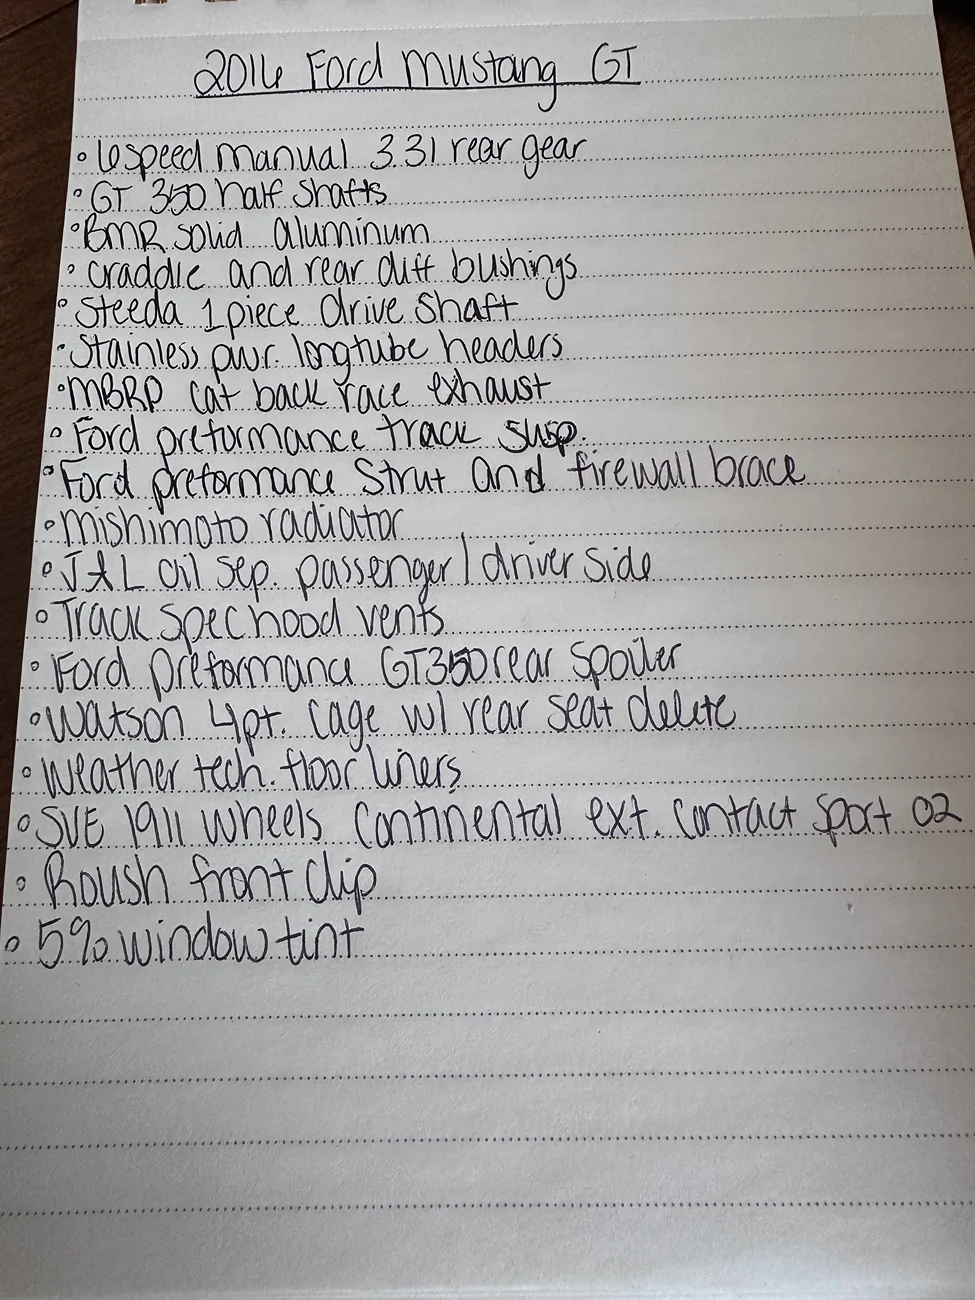 2016 Ford Mustang GT
• 6speed manual 3.31 rear gear
• GT 350 half shafts
• BMR solid aluminum
• craddle and rear diff bushings
• Steeda 1 piece drive shaft
• Stainless pwr. longtube headers
• MBRP cat back race exhaust
• Ford preformance track susp.
• Ford preformance Strut and firewall brace
• mishimoto radiator
• J&L oil sep. passenger/driver side
• Track Spec hood vents
• Ford preformance GT350 rear spoiler
• Watson 4pt. cage w/ rear seat delete
• Weather tech. floor liners
• SVE 19x11 wheels Continental ext. contact sport 02
• Roush front clip
• 5% window tint